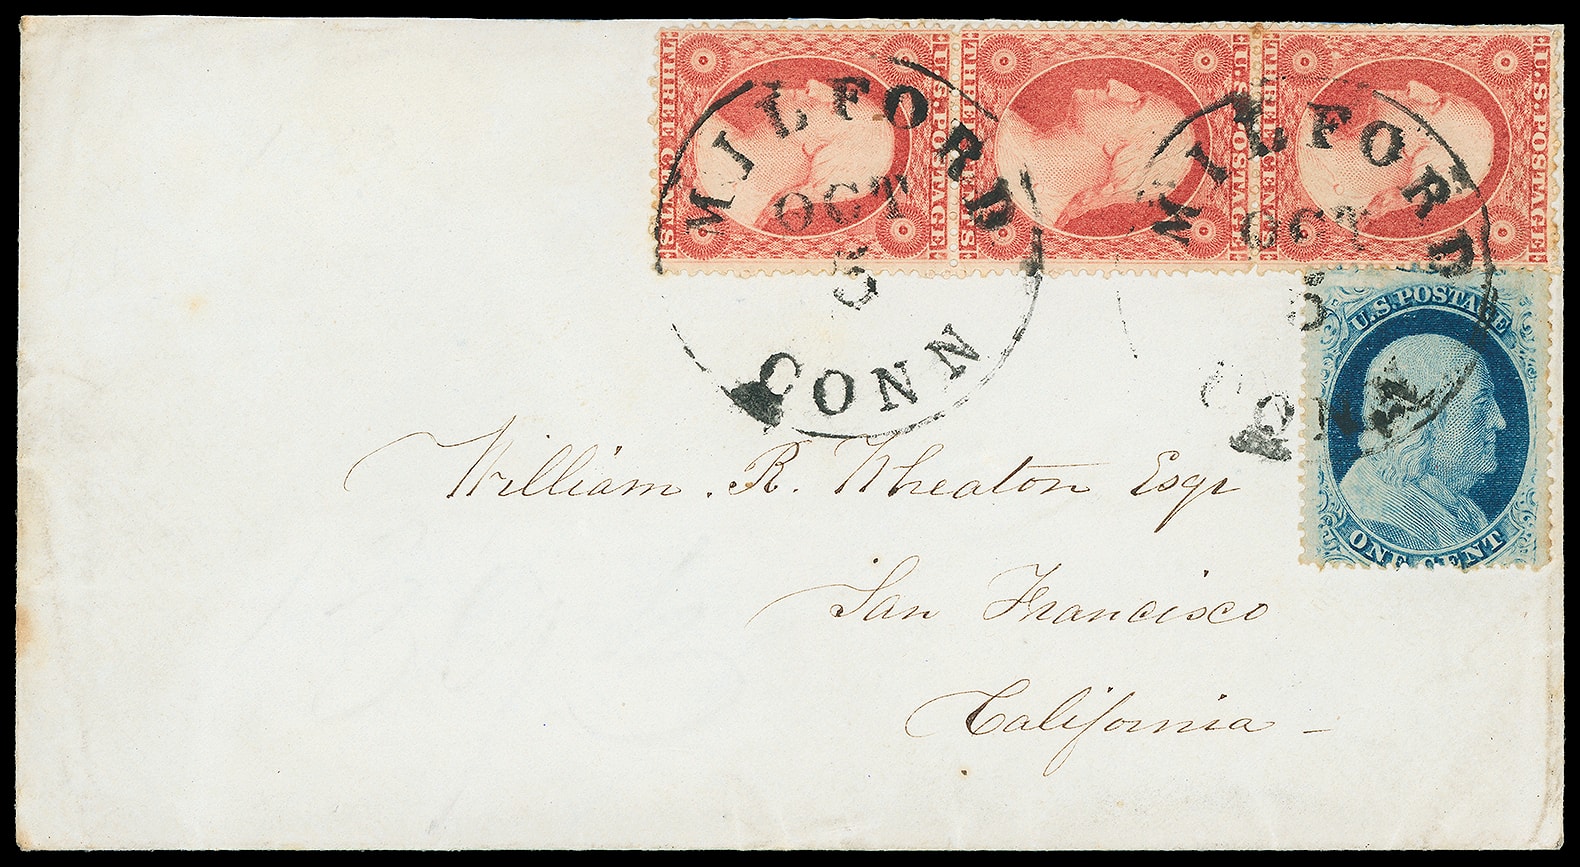 THREE CENTS U.S. POSTAGE THREE CENTS U.S. POSTAGE THREE CENTS U.S. POSTAGE
MILFORD
OCT
5
CONN
MILFORD
OCT
5
CONN
U.S. POSTAGE
ONE CENT
William R. Wheaton Esqr
San Francisco
California